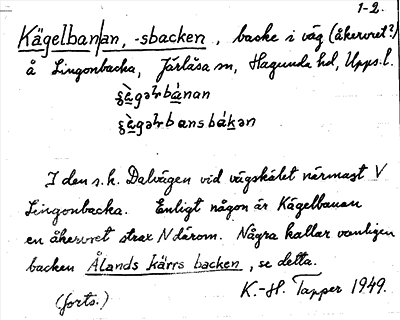 1-2.
Kägelban|an, -sbacken, backe i väg (åkervret?)
å Lingonbacka, Järlåsa sn, Hagunda hd, Upps.l.
I den s.k. Dalvägen vid vägskälet närmast V
Lingonbacka. Enligt någon är Kägelbanan
en åkervret strax N därom. Några kallar vanligen
backen Ålands kärrs backen, se detta.
K.-H. Tapper 1949.
(forts.)